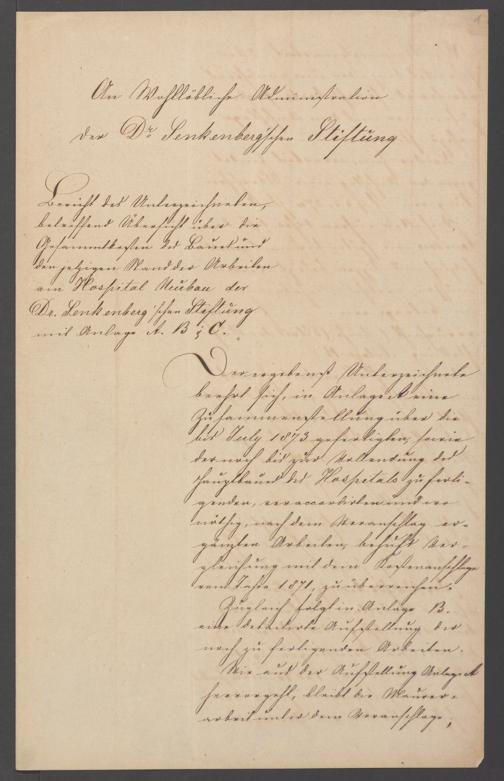 An Wohllöbliche Administration
der Dr. Senkenberg'schen Stiftung
Bericht des Unterzeichneten,
betreffend Übersicht über die
Gesammtkosten des Baues und
den jetzigen Stand der Arbeiten
am Hospital Neubau der
Dr. Senkenberg'schen Stiftung
mit Anlage A. B & C.
Der ergebenst Unterzeichnete
beehrt sich, in Anlage A eine
Zusammenstellung über die
bis July 1873 gefertigten, sowie
der noch bis zur Vollendung des
Hauptbaues des Hospitals zu ferti-
genden, veraccordirten und wo
nöthig, nach dem Voranschlag er-
gänzten Arbeiten, behufs Ver-
gleichung mit dem Kostenanschlage
vom Jahre 1871, zu überreichen.
Zugleich folgt in Anlage B.
eine detaillirte Aufstellung der
noch zu fertigenden Arbeiten.
Wie aus der Aufstellung Anlage A
hervorgeht, bleibt die Maurer-
arbeit unter dem Voranschlage,